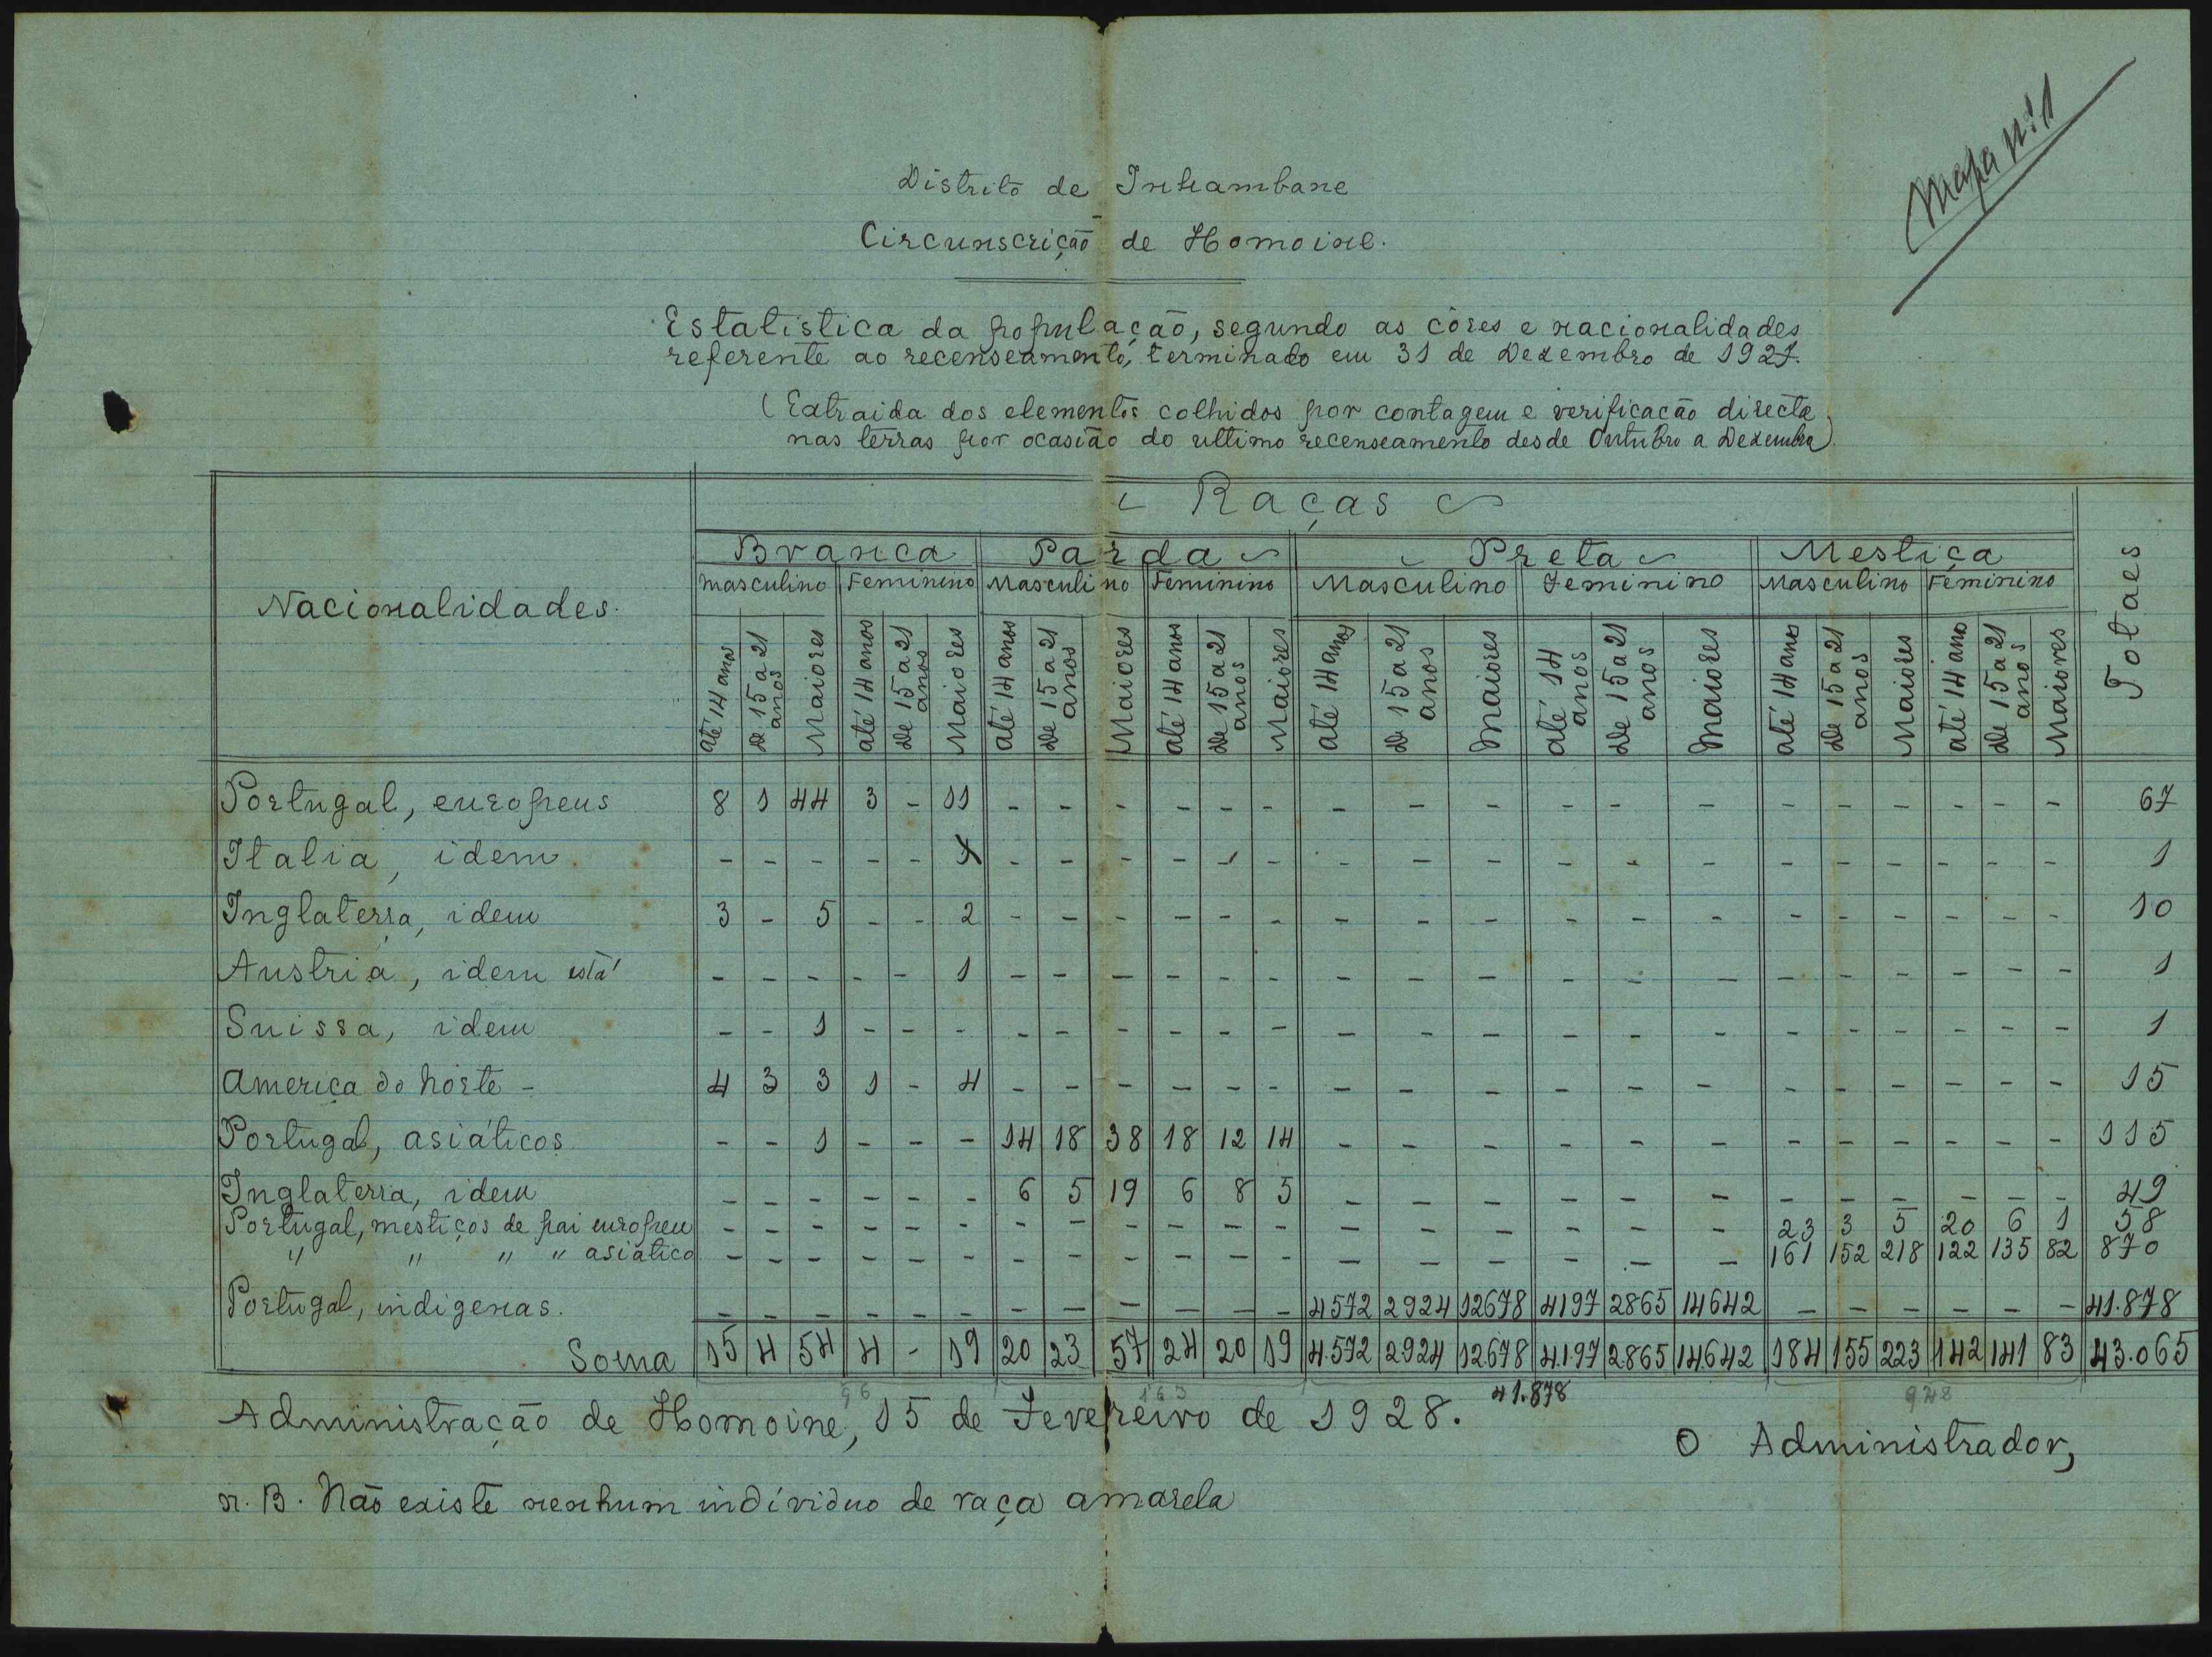 Mapa nº 1
Distrito de Inhambane
Circunscrição de Homoine.
Estatistica da população, segundo as côres e nacionalidades
referente ao recenseamento, terminado em 31 de Dezembro de 1927.
(Extraida dos elementos colhidos por contagem e verificação directa
nas terras por ocasião do ultimo recenseamento desde Outubro a Dezembro).
Nacionalidades. Raças Totaes
Branca Parda Preta Mestiça
Masculino Feminino Masculino Feminino Masculino Feminino Masculino Feminino
até 14 anos De 15 a 21 anos Maiores até 14 anos De 15 a 21 anos Maiores até 14 anos De 15 a 21 anos Maiores até 14 anos De 15 a 21 anos Maiores até 14 anos De 15 a 21 anos Maiores até 14 anos De 15 a 21 anos Maiores até 14 anos De 15 a 21 anos Maiores até 14 ano De 15 a 21 anos Maiores
Portugal, europeus 8 1 44 3 - 11 - - - - - - - - - - - - - - - - - - 67
Italia, idem - - - - - 1 - - - - - - - - - - - - - - - - - - 1
Inglaterra, idem 3 - 5 - - 2 - - - - - - - - - - - - - - - - - - 10
Austria, idem está - - - - - 1 - - - - - - - - - - - - - - - - - - 1
Suissa, idem - - 1 - - - - - - - - - - - - - - - - - - - - - 1
America do Norte - 4 3 3 1 - 4 - - - - - - - - - - - - - - - - - - 15
Portugal, asiáticos - - 1 - - - 14 18 38 18 12 14 - - - - - - - - - - - - 115
Inglaterra, idem - - - - - - 6 5 19 6 8 5 - - - - - - - - - - - - 49
Portugal, mestiços de pai europeu - - - - - - - - - - - - - - - - - - 23 3 5 20 6 1 58
" " " " asiatico - - - - - - - - - - - - - - - - - - 161 152 218 122 135 82 870
Portugal, indigenas. - - - - - - - - - - - - 4572 2924 12678 4197 2865 14642 - - - - - - 41.878
Soma 15 4 54 4 - 19 20 23 57 24 20 19 4.572 2924 12678 4.197 2865 14.642 184 155 223 142 141 83 43.065
96 163 41.878 928
Administração de Homoine, 15 de Fevereiro de 1928.
O Administrador,
n. B. Não existe nenhum indíviduo de raça amarela